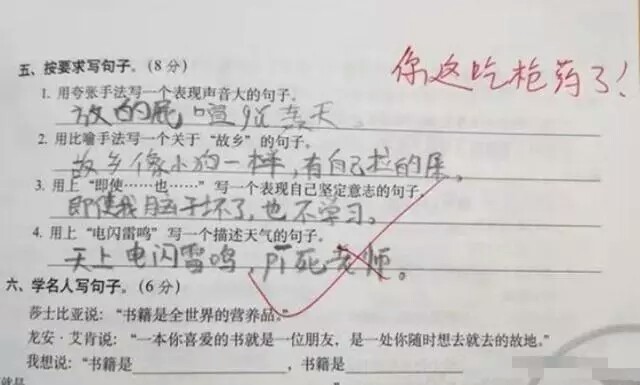 五、按要求写句子。(8分)
你这吃枪药了！
1. 用夸张手法写一个表现声音大的句子。
放的屁喧
天。
2. 用比喻手法写一个关于“故乡”的句子。
故乡像小狗一样，有自己拉的屎。
3. 用上“即使……也……”写一个表现自己坚定意志的句子。
即使我脑子坏了，也不学习。
4. 用上“电闪雷鸣”写一个描述天气的句子。
天上电闪雷鸣，吓死老师。
六、学名人写句子。(6分)
莎士比亚说：“书籍是全世界的营养品。”
龙安·艾肯说：“一本你喜爱的书就是一位朋友，是一处你随时想去就去的故地。”
我想说：“书籍是____________，书籍是____________
就是